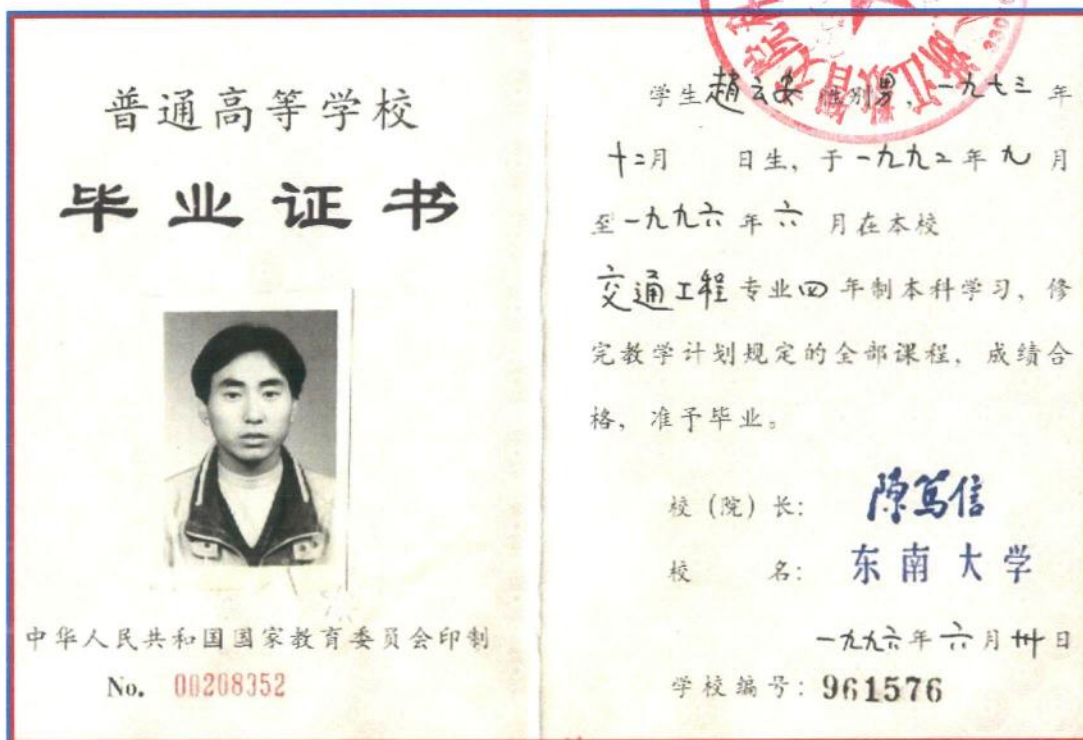 普通高等学校
毕业证书
中华人民共和国国家教育委员会印制
No. 00208352
学生趙云安 性别男，一九七三年
十二月 日生，于一九九二年九月
至一九九六年六 月在本校
交通工程专业四年制本科学习，修
完教学计划规定的全部课程，成绩合
格，准予毕业。
校（院）长：陈笃信
校 名：东南大学
一九九六年六月卅日
学校编号：961576